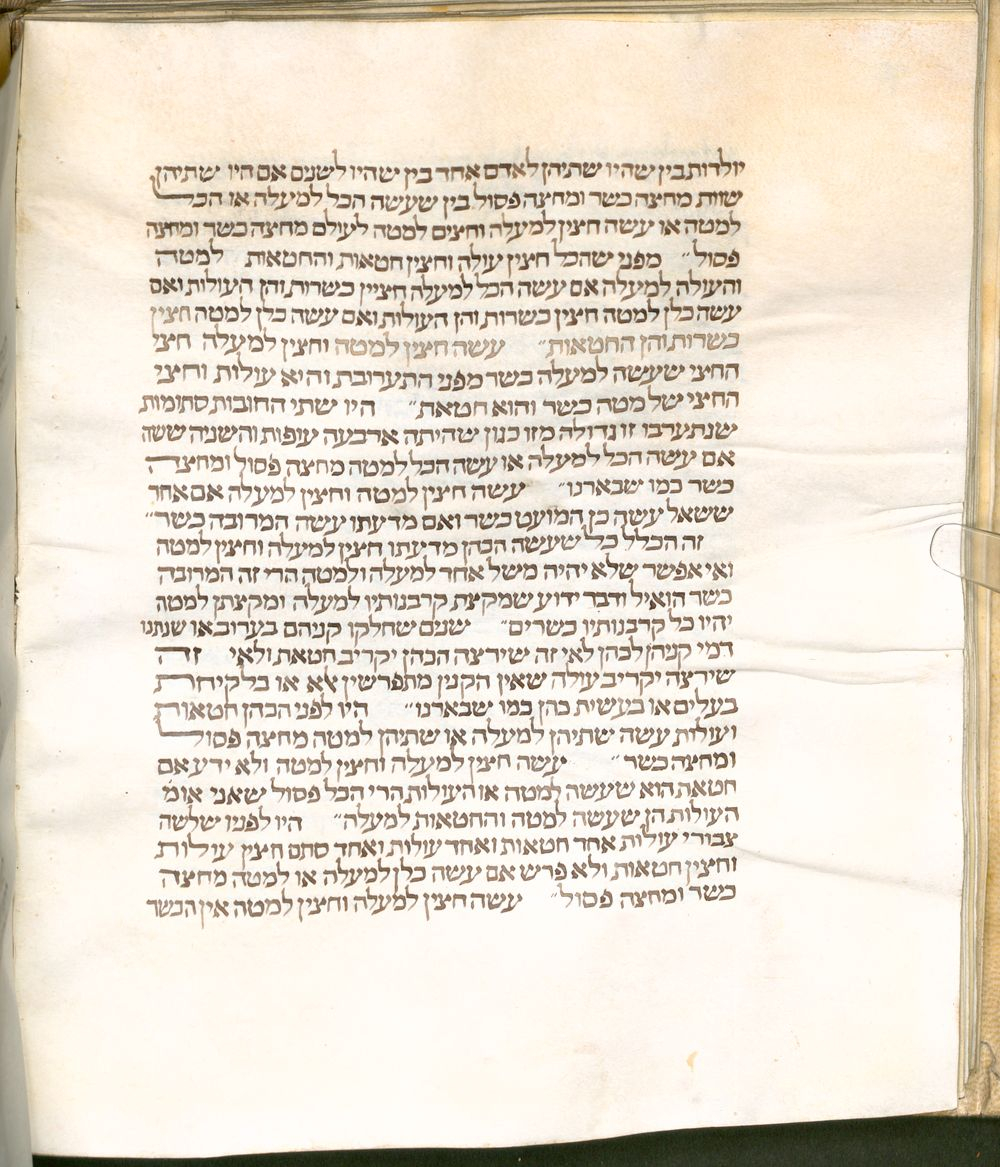 יולדות בין שהיו שתיהן לאדם אחד בין שהיו לשנים אם היו שתיהן
שוות מחצה כשר ומחצה פסול בין שעשה הכל למעלה או הכל
למטה או עשה חציין למעלה וחציים למטה לעולם מחצה כשר ומחצה
פסול״ מפני שהכל חציין עולה וחציין חטאות והחטאות למטה
והעולה למעלה אם עשה הכל למעלה חציין כשרות והן העולות ואם
עשה כלן למטה חציין כשרות והן העולות ואם עשה כלן למטה חציין
כשרות והן החטאות״ עשה חציין למטה וחציין למעלה חצי
החצי שעשה למעלה כשר מפני התערובת והיא עולות וחצי
החצי של מטה כשר והוא חטאת״ היו שתי החובות סתומות
שנתערבו זו גדולה מזו כגון שהיתה ארבעה עופות והשניה ששה
אם עשה הכל למעלה או עשה הכל למטה מחצה פסול ומחצה
כשר כמו שבארנו״ עשה חציין למטה וחציין למעלה אם אחד
ששאל עשה כן המועט כשר ואם מדעתו עשה המרובה כשר״
זה הכלל כל שעשה הכהן מדעתו חציין למעלה וחציין למטה
ואי אפשר שלא יהיה משל אחד למעלה ולמטה הרי זה המרובה
כשר הואיל ודבר ידוע שמקצת קרבנותיו למעלה ומקצתן למטה
יהיו כל קרבנותיו כשרים״ שנים שחלקו קניהם בערוב או שנתנו
דמי קניהן לכהן לאי זה שירצה הכהן יקריב חטאת ולאי זה
שירצה יקריב עולה שאין הקנין מתפרשין אלא או בלקיחת
בעלים או בעשית כהן כמו שבארנו״ היו לפני הכהן חטאות
ועולות עשה שתיהן למעלה או שתיהן למטה מחצה פסול
ומחצה כשר״ עשה חציין למעלה וחציין למטה ולא ידע אם
חטאת הוא שעשה למטה או העולות הרי הכל פסול שאני אומ׳
העולות הן שעשה למטה והחטאות למעלה״ היו לפניו שלשה
צבורי עולות אחד חטאות ואחד עולות ואחד סתם חציין עולות
וחציין חטאות ולא פרש אם עשה כלן למעלה או למטה מחצה
כשר ומחצה פסול״ עשה חציין למעלה וחציין למטה אין הכשר